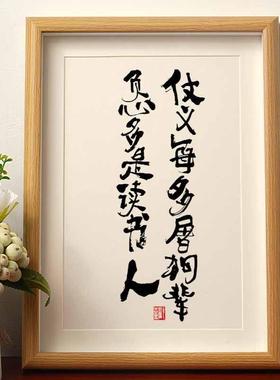 仗义每多屠狗辈
负心多是读书人